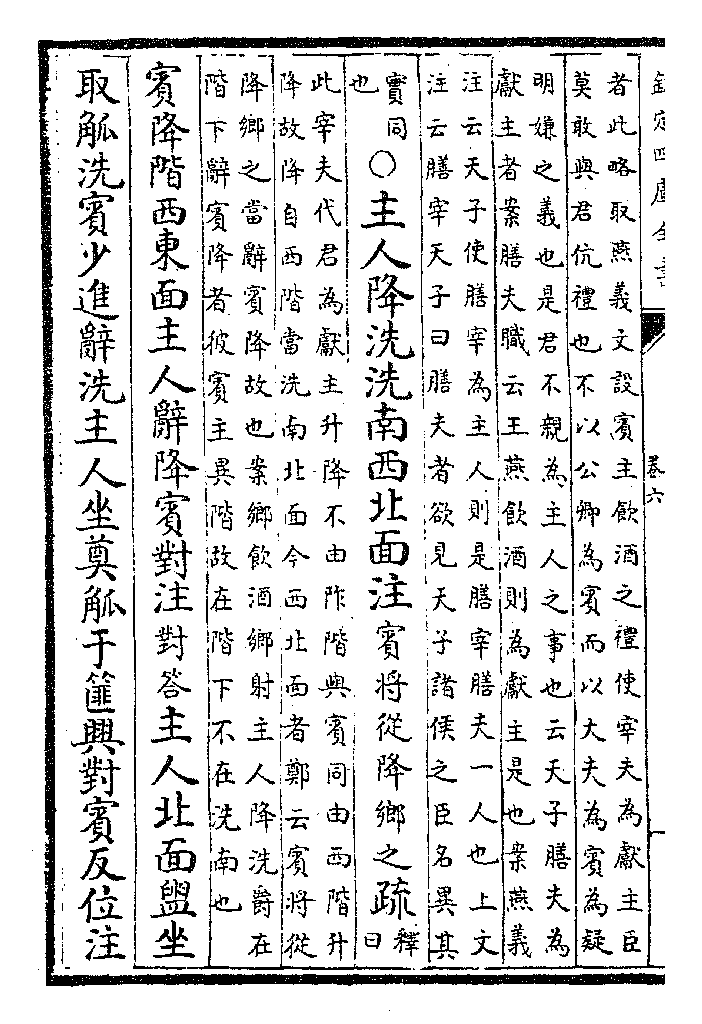 欽定四庫全書
卷六
者此略取燕義文設賓主飲酒之禮使宰夫為獻主臣
莫敢與君伉禮也不以公卿為賓而以大夫為賓為疑
明嫌之義也是君不親為主人之事也云天子膳夫為
獻主者案膳夫職云王燕飲酒則為獻主是也案燕義
注云天子使膳宰為主人則是膳宰膳夫一人也上文
注云膳宰天子曰膳夫者欲見天子諸侯之臣名異其
實同
也
○主人降洗洗南西北面注賓將從降鄉之疏釋
曰
此宰夫代君為獻主升降不由阼階與賓同由西階升
降故降自西階當洗南北面今西北面者鄭云賓將從
降鄉之當辭賓降故也案鄉飲酒鄉射主人降洗爵在
階下辭賓降者彼賓主異階故在階下不在洗南也
賓降階西東面主人辭降賓對注對答主人北面盥坐
取觚洗賓少進辭洗主人坐奠觚于篚興對賓反位注